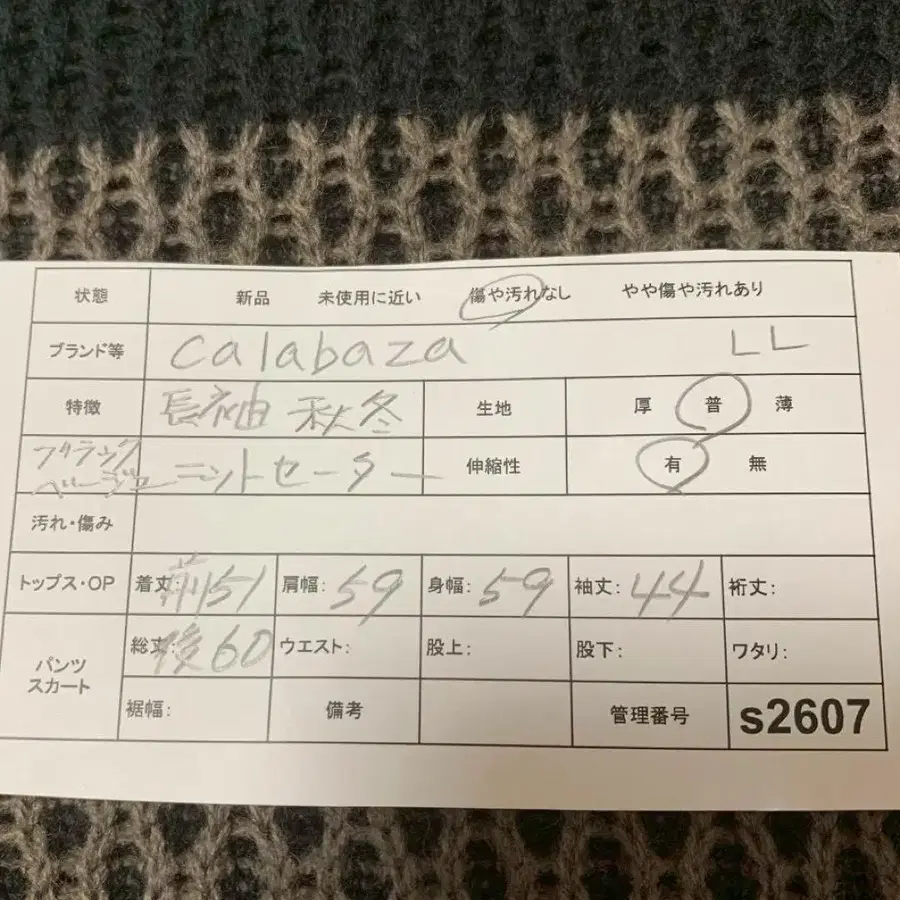 状態 新品 未使用に近い 傷や汚れなし やや傷や汚れあり
ブランド等 calabaza LL
特徴 長袖 秋冬 生地 厚 普 薄
ブラック
ベージュ ニットセーター 伸縮性 有 無
汚れ・傷み
トップス・OP 着丈: 前51 肩幅: 59 身幅: 59 袖丈: 44 裄丈:
パンツ スカート 総丈: 後60 ウエスト: 股上: 股下: ワタリ:
裾幅: 備考 管理番号 s2607